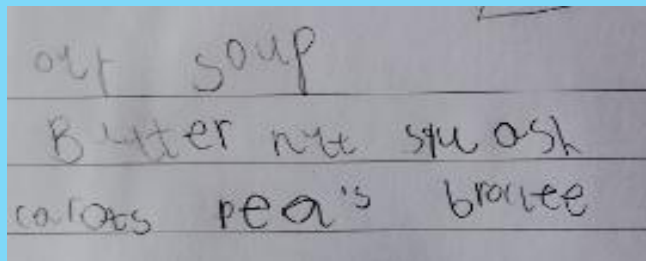 our soup
Butter nut squash
carots pea's broclee